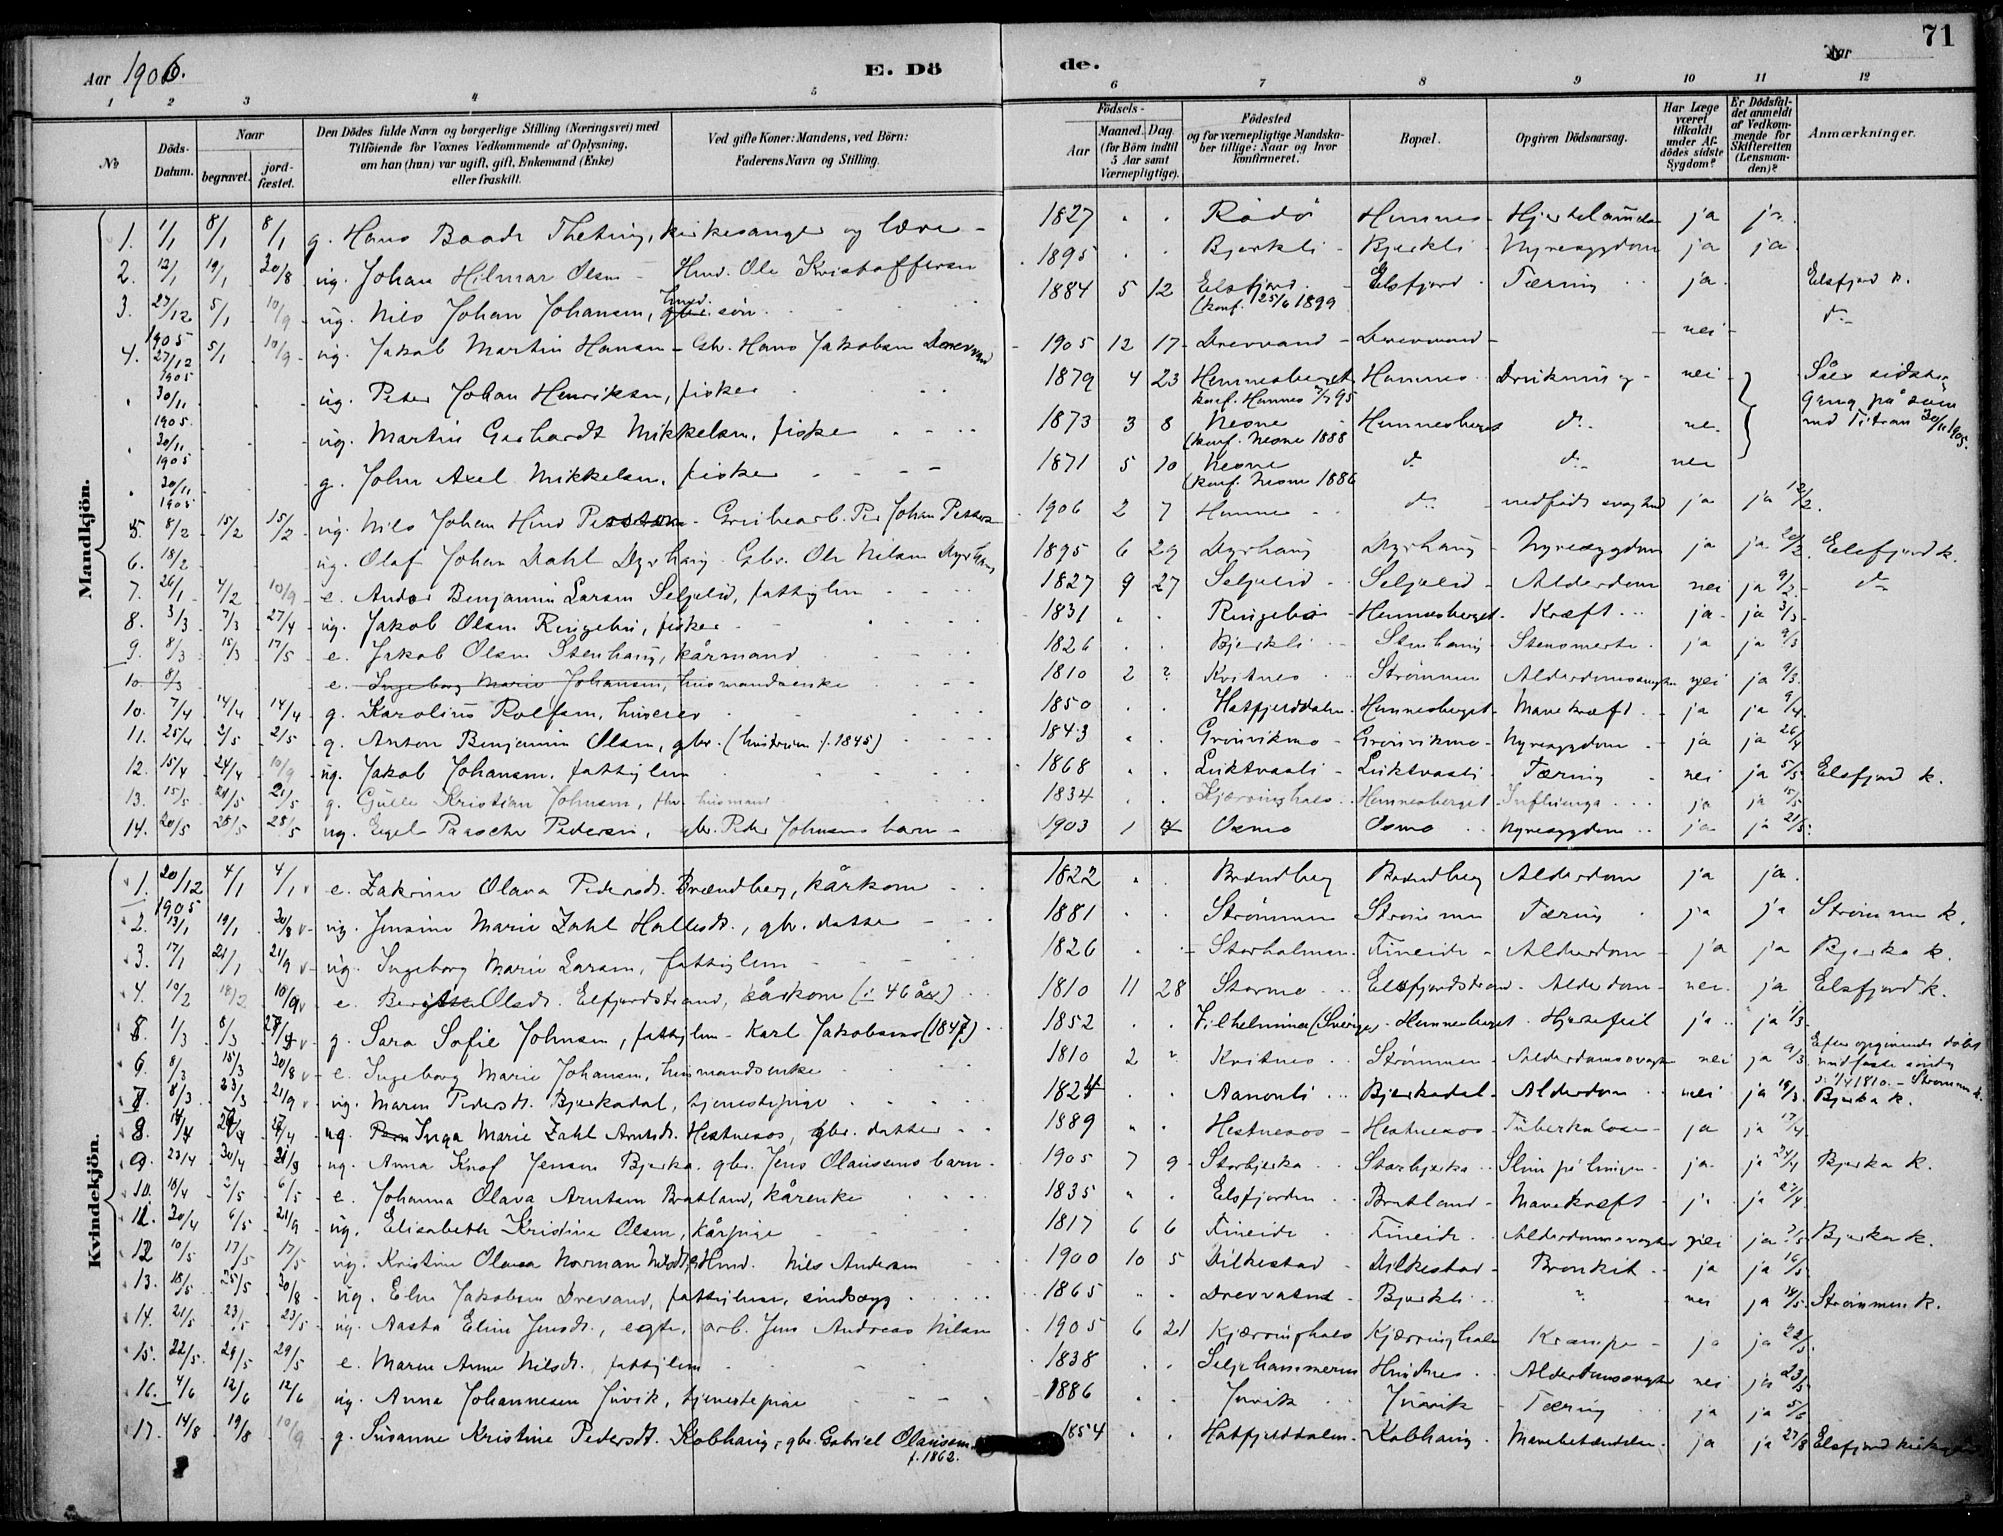 71
Aar 1906. E. Dö de. Aar
1 2 3 4 5 6 7 8 9 10 11 12
No Döds-Datum. Naar begravet. jordfæstet. Den Dödes fulde Navn og borgerlige Stilling (Næringsvei) med Tilföiende for Voxnes Vedkommende af Oplysning, om han (hun) var ugift, gift, Enkemand (Enke) eller fraskilt. Ved gifte Koner: Mandens, ved Börn: Faderens Navn og Stilling. Födsels- Aar Maaned. Dag. (for Börn indtil 5 Aar samt Værnepligtige). Födested og for værnepligtige Mandskaber tillige: Naar og hvor konfirmeret. Bopæl. Opgiven Dödsaarsag. Har Læge været tilkaldt under Afdödes sidste Sygdom? Er Dödsfaldet anmeldt af Vedkommende for Skifteretten (Lensmanden)? Anmærkninger.
Mandkjön.
1. 1/1 8/1 8/1 g. Hans Baade Theting, kirkesanger og lærer 1827 Rödö Hemnes ja ja
2. 12/1 19/1 30/8 ug. Johan Hilmar Olsen Hmd. Ole Kristoffersen 1895 Bjerkli Bjerkli Nyresygdom ja ja
3. 27/12 1905 5/1 10/9 ug. Nils Johan Johansen, hmd. søn 1884 5 12 Elsfjord (konf. 25/6 1899 Elsfjord Tæring ja Elsfjord k.
4. 27/12 1905 5/1 10/9 ug. Jakob Martin Hansen Gbr. Hans Jakobsen Drevvand 1905 12 17 Drevvand Drevvand nei do
30/11 1905 ug. Peter Johan Henriksen, fisker 1879 4 23 Hemnesberget konf. Hemnes 7/7 95 Hemnes Drukning nei
30/11 1905 ug. Martin Gerhardt Mikkelsen, fisker 1873 3 8 Nesne (konf. Nesne 1888 Hemnesberget do nei
30/11 1905 g. John Axel Mikkelsen, fisker 1871 5 10 Nesne (konf. Nesne 1886 do do nei
Såes sidste gang på søen ved Titran 30/11 1905.
5. 8/2 15/2 15/2 ug. Nils Johan Hind Gruibearb. Per Johan Petters 1906 2 7 Hemnes do medfødt svaghed ja ja 12/2.
6. 18/2 ug. Olaf Johan Dahl Dyrhaug Gbr. Ole Nilsen Dyrhaug 1895 6 29 Dyrhaug Dyrhaug Nyresygdom ja ja 20/2. Elsfjord k.
7. 26/1 4/2 10/9 e. Andor Benjamin Larsen Seljelid, fattiglem 1827 9 27 Seljelid Seljelid Alderdom nei ja 9/2. do
8. 3/3 7/3 27/4 ug. Jakob Olsen Ringebu, fisker 1831 Ringebu Hemnesberget Kræft ja ja 3/3
9. 8/3 15/3 17/5 e. Jakob Olsen Stenhaug, kårmand 1826 Bjerkli Stenhaug Stensmerte ja ja 9/3
10. 8/3 e. Ingeborg Marie Johansen, husmandsenke 1810 2 ? Kvitnes Strømmen Alderdomssvaghed nei ja 9/3.
10. 7/4 14/4 14/4 g. Karolius Rolfsen, huseier 1850 Hatfjelddalen Hemnesberget Mavekræft ja ja 9/4
11. 25/4 2/5 2/5 g. Anton Benjamin Olsen, gbr. (hustruen f. 1845) 1843 Grønvikmo Grønvikmo Nyresygdom ja ja 26/4
12. 15/4 24/4 10/9 ug. Jakob Johansen, fattiglem 1868 Luktvasli Luktvasli Tæring nei ja 5/5 Elsfjord k.
13. 15/5 21/5 21/5 g. Gulle Kristian Johnsen, fhv. husmand 1834 Kjærringhals Hemnesberget Influenza ja ja 15/5
14. 20/5 28/5 28/5 ug. Eigel Paasche Pedersen, gbr. Peder Johnsens barn 1903 1 Osmo Osmo Nyresygdom ja ja 21/5.
Kvindekjön.
1. 20/12 1905 4/1 4/1 e. Zakrine Olava Pedersdt. Brændberg, kårkone 1822 Brændberg Brændberg Alderdom ja ja
2. 13/1 19/1 30/8 ug. Jensine Marie Zahl Hallesdt., gbr. datter 1881 Strømmen Strømmen Tæring ja ja Strømmen k.
3. 17/1 21/1 21/9 ug. Ingeborg Marie Larsen, fattiglem 1826 Storholmen Fineide Alderdom ja ja Bjerka k.
4. 10/2 18/2 10/9 e. Olsdt. Elfjordstrand, kårkone (i 46 år) 1810 11 28 Stormo Elsfjordstrand Alderdom nei ja Elsfjord k.
5. 1/3 8/3 27/4 g. Sara Sofie Johnsen, fattiglem Karl Jakobsens (1847) 1852 Vilhelmina (Sverige) Hemnesberget Hjertefeil ja ja 1/3
6. 8/3 15/3 30/8 e. Ingeborg Marie Johansen, husmandsenke 1810 2 ? Kvitnes Strømmen Alderdomssvaghed nei ja 9/3 Efter opgivende døbt midfaste søndag 1/4 1810. Strømmen k.
7. 8/3 23/3 21/9 ug. Maren Pedersdt. Bjerkadal, tjenestepige 1824 Aanonli Bjerkadal Alderdom nei ja 18/3. Bjerka k.
8. 14/4 27/4 27/4 ug. Inga Marie Zahl Arntsdt. Hestnesos, gbr. datter 1889 Hestnesos Hestnesos Tuberkulose ja ja 17/4
9. 23/4 30/4 21/9 ug. Anna Knof Jensen Bjerka, gbr. Jens Olaussens barn 1905 7 9 Storbjerka Storbjerka Slim på lungen ja ja 24/4 Bjerka k.
10. 18/4 2/5 6/5 e. Johanna Olava Arntsen Bratland, kårenke 1835 Elsfjorden Bratland Mavekræft ja ja 27/4
11. 30/4 6/5 21/9 ug. Elisabeth Kristine Olsen, kårpige 1817 6 6 Fineide Fineide Alderdomssvaghed nei ja 2/5 Bjerka k.
12 10/5 17/5 17/5 ug. Kristine Olava Norman Nilsdt. Hmd. Nils Andersen 1900 10 5 Dilkestad Dilkestad Bronkit ja ja 16/5
13. 18/5 25/5 30/8 ug. Elen Jakobsen Drevvand, fattiglem, sindssyg 1865 Drevvatne Bjerkli ? nei ja 18/5. Strømmen k.
14. 21/5 23/5 23/5 ug. Aasta Eline Jensdt., egte, arb. Jens Andreas Nilsen 1905 6 21 Kjærringhals Kjærringhals Krampe ja ja 22/5.
15. 22/5 29/5 29/5 e. Maren Anne Nilsdt. fattiglem 1838 Seljehammeren Hindnes Alderdomssvaghed nei ja 23/5
16. 4/6 12/6 12/6 ug. Anna Johannesen Juvik, tjenestepige 1886 Juvik Juvik Tæring ja ja 5/6
17. 14/8 19/8 10/9 g. Susanne Kristine Pedersdt. Kobhaug, gbr. Gabriel Olaussen f. 1862. 1854 Hatfjelddalen Kobhaug Mavebetændelse ja ja 27/8 Elsfjord kirkegård